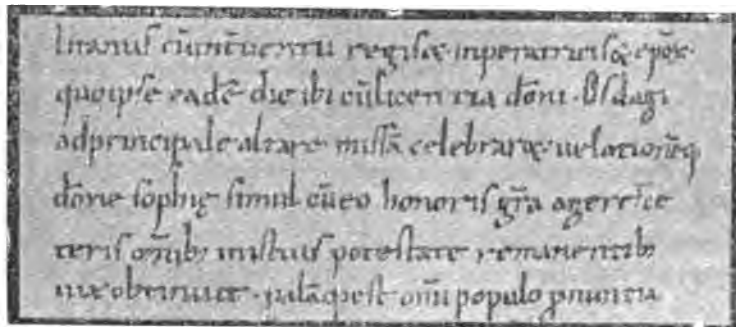 litanus cū cōuentu regis & inperatricis & ep̄o℞
quo ipse eadē die ibi cū licentia dōni Osdagi
ad principale altare missā celebrar& uelationēq;
dōne sophię simul cū eo honoris gr̄a ageret ce
teris om̄ib; in illius potestate remanentib;
uix obtinuit palā est om̄i populo